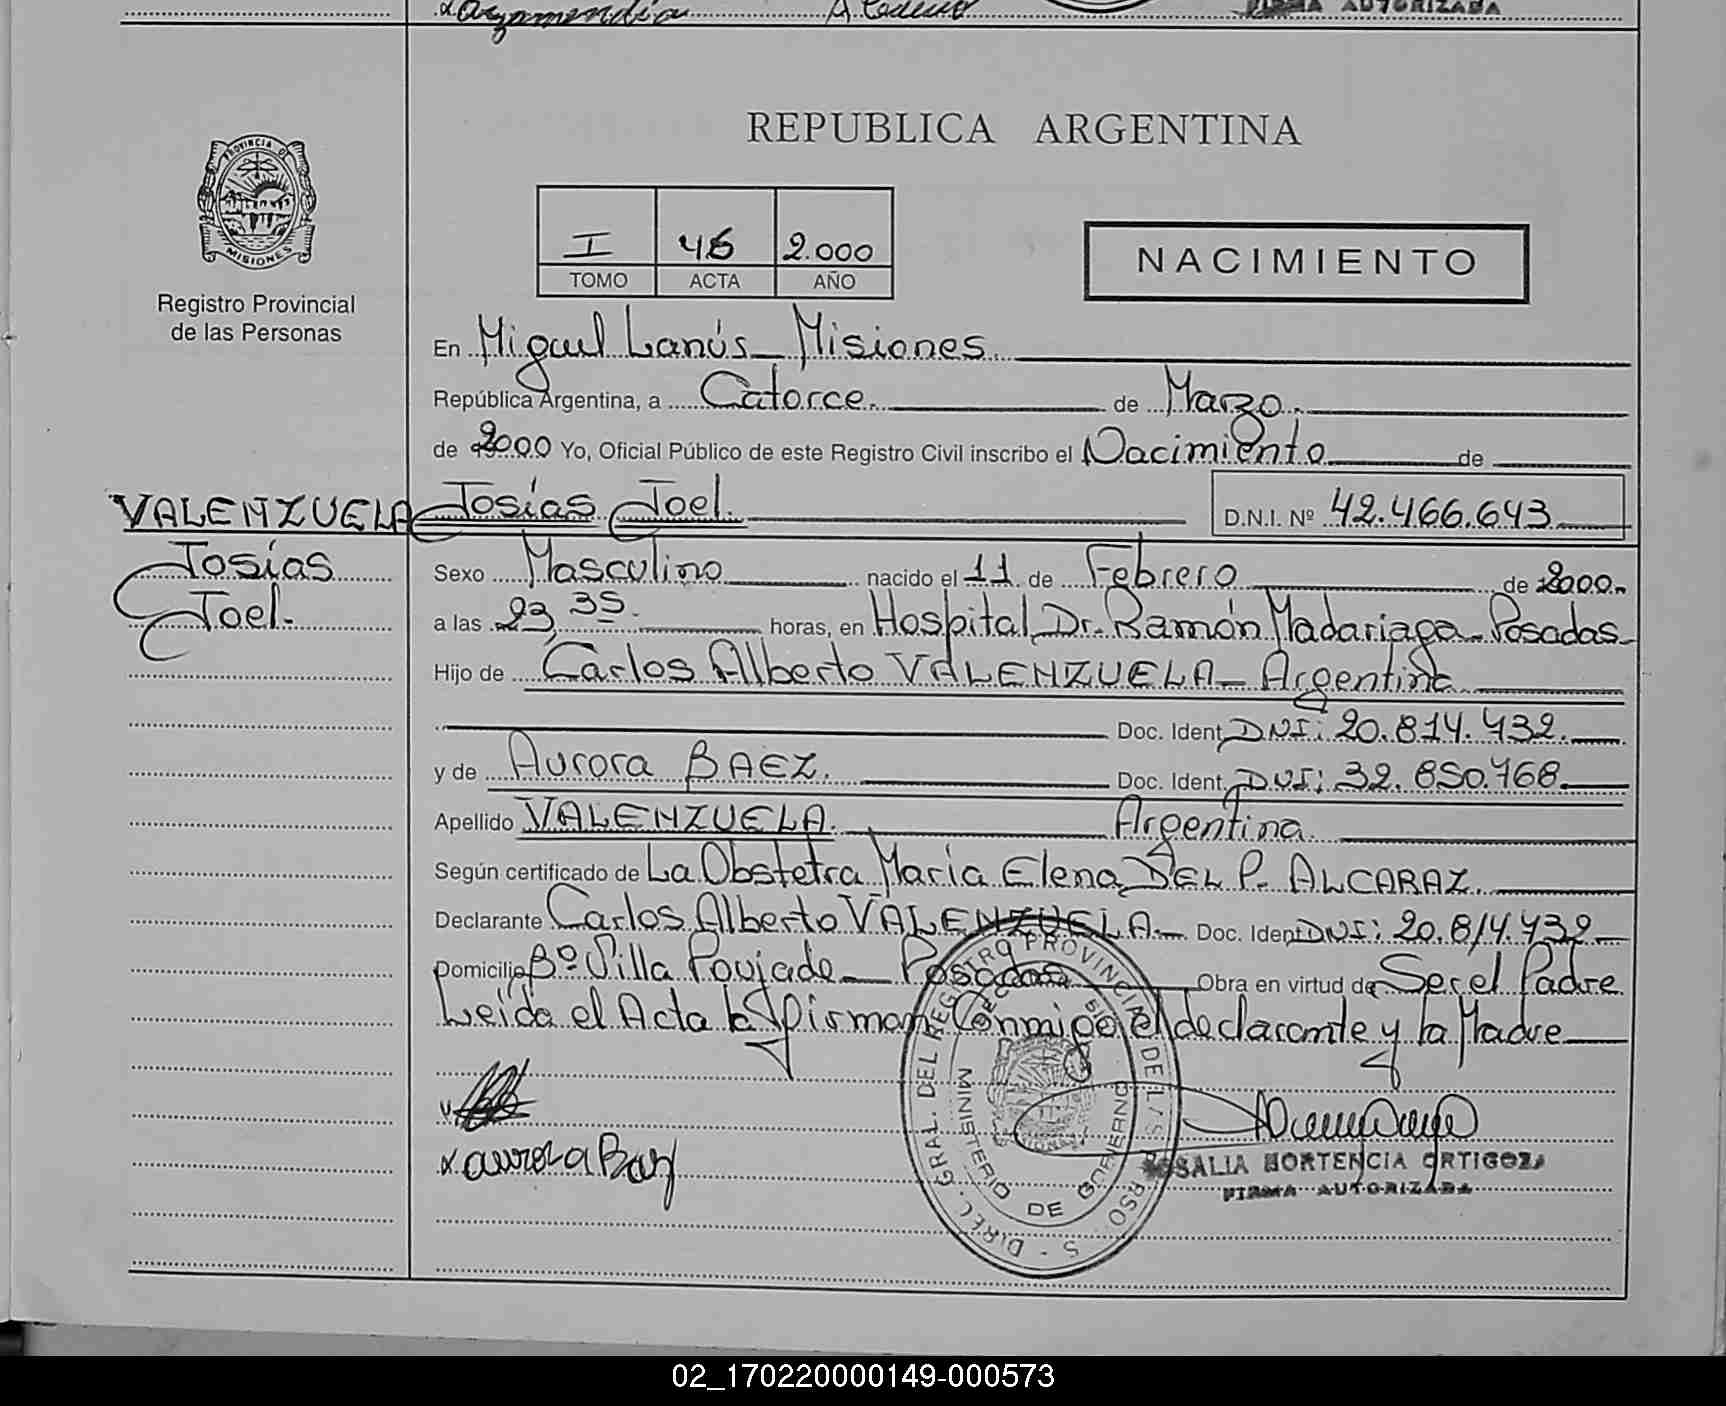 FIRMA AUTORIZADA
REPUBLICA ARGENTINA
PROVINCIA DE
MISIONES
Registro Provincial
de las Personas
I 46 2.000
TOMO ACTA AÑO
NACIMIENTO
En Miguel Lanús - Misiones
República Argentina, a Catorce. de Marzo.
de 2000 Yo, Oficial Público de este Registro Civil inscribo el Nacimiento de
VALENZUELA Josías Joel. D.N.I. Nº 42.466.643
Josías
Joel.
Sexo Masculino nacido el 11 de Febrero de 2000.
a las 23,35. horas, en Hospital Dr. Ramón Madariaga - Posadas
Hijo de Carlos Alberto VALENZUELA - Argentina
Doc. Ident. DNI: 20.814.432.
y de Aurora BAEZ. Doc. Ident. DNI: 32.850.468.
Apellido VALENZUELA. Argentina.
Según certificado de La Obstetra María Elena DEL P. ALCARAZ.
Declarante Carlos Alberto VALENZUELA - Doc. Ident. DNI: 20.814.432
Domicilio Bº Villa Poujade - Posadas Obra en virtud de Ser el Padre
Leída el Acta la firman Conmigo el declarante y la Madre
aurora Baez
ROSALIA HORTENCIA ORTIGOZA
FIRMA AUTORIZADA
DIREC. GRAL. DEL REGISTRO PROVINCIAL DE LAS PERSONAS
MINISTERIO DE GOBIERNO
02_170220000149-000573